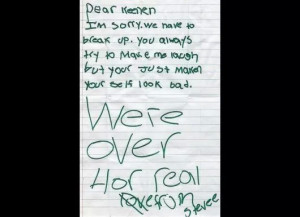 Dear Keenen
I'm sorry. we have to
break up. you always
try to make me laugh
but your Just maken
your self look bad.
We're
over
for real